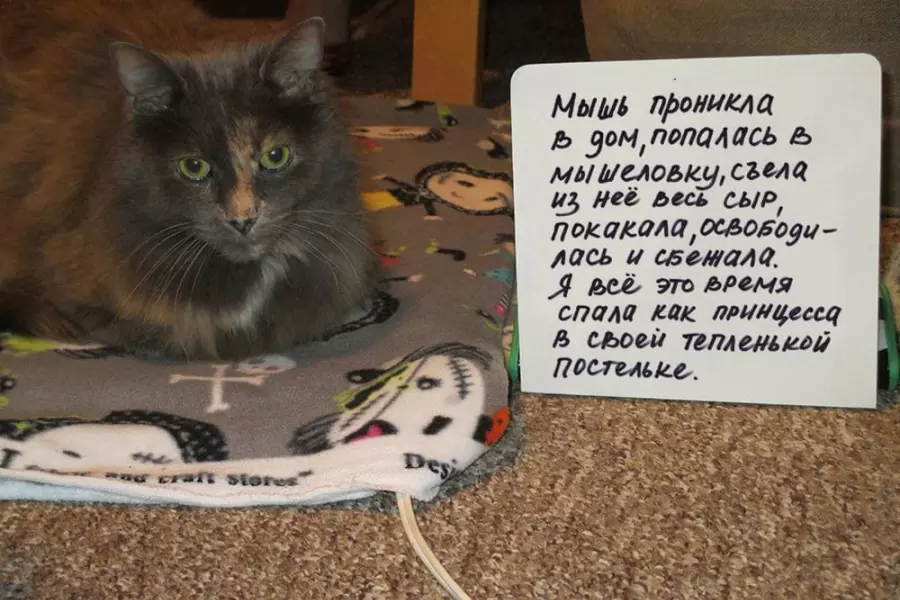 Мышь проникла
в дом, попалась в
мышеловку, съела
из неё весь сыр,
покакала, освободи-
лась и сбежала.
Я всё это время
спала как принцесса
в своей тепленькой
постельке.
and Craft Stores"